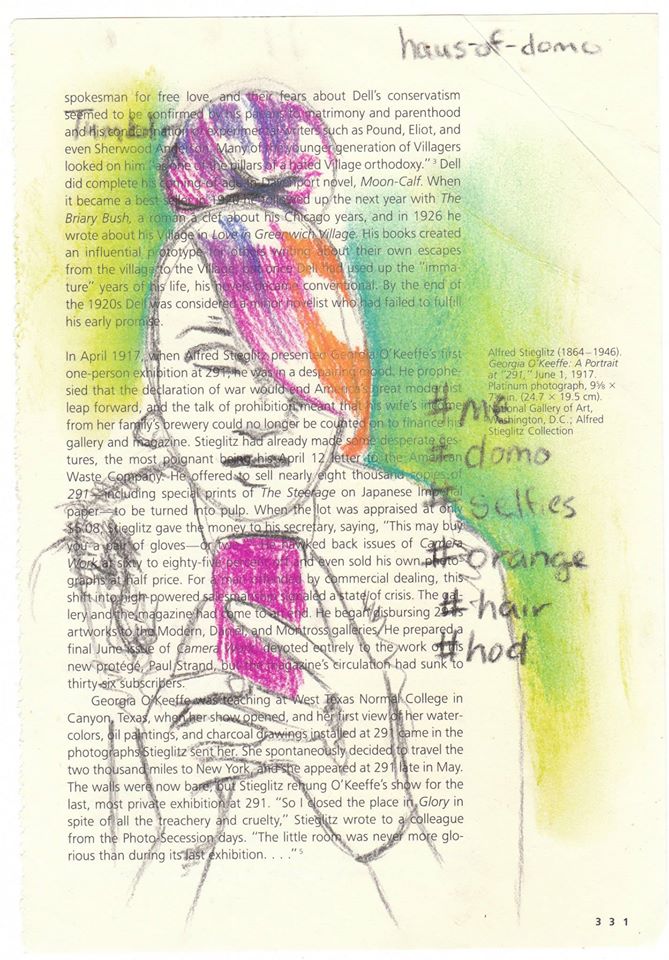 haus-of-domo
spokesman for free love, and their fears about Dell's conservatism
seemed to be confirmed by his paeans to matrimony and parenthood
and his condemnation of experimental writers such as Pound, Eliot, and
even Sherwood Anderson. Many of the younger generation of Villagers
looked on him "as one of the pillars of a hated Village orthodoxy."3 Dell
did complete his coming-of-age in Davenport novel, Moon-Calf. When
it became a best seller in 1920 he followed up the next year with The
Briary Bush, a roman à clef about his Chicago years, and in 1926 he
wrote about his Village in Love in Greenwich Village. His books created
an influential prototype for others writing about their own escapes
from the village to the Village, but once Dell had used up the "imma-
ture" years of his life, his novels became conventional. By the end of
the 1920s Dell was considered a minor novelist who had failed to fulfill
his early promise.
In April 1917, when Alfred Stieglitz presented Georgia O'Keeffe's first
one-person exhibition at 291, he was in a despairing mood. He prophe-
sied that the declaration of war would end America's great modernist
leap forward, and the talk of prohibition meant that his wife's income
from her family's brewery could no longer be counted on to finance his
gallery and magazine. Stieglitz had already made some desperate ges-
tures, the most poignant being his April 12 letter to the American
Waste Company. He offered to sell nearly eight thousand copies of
291, including special prints of The Steerage on Japanese Imperial
paper—to be turned into pulp. When the lot was appraised at only
$5.08, Stieglitz gave the money to his secretary, saying, "This may buy
you a pair of gloves—or two." He hawked back issues of Camera
Work at sixty to eighty-five percent off and even sold his own photo-
graphs at half price. For a man offended by commercial dealing, this
shift into high-powered salesmanship signaled a state of crisis. The gal-
lery and the magazine had come to an end. He began disbursing 291
artworks to the Modern, Daniel, and Montross galleries. He prepared a
final June issue of Camera Work, devoted entirely to the work of his
new protégé, Paul Strand, but the magazine's circulation had sunk to
thirty-six subscribers.
Georgia O'Keeffe was teaching at West Texas Normal College in
Canyon, Texas, when her show opened, and her first view of her water-
colors, oil paintings, and charcoal drawings installed at 291 came in the
photographs Stieglitz sent her. She spontaneously decided to travel the
two thousand miles to New York, and she appeared at 291 late in May.
The walls were now bare, but Stieglitz rehung O'Keeffe's show for the
last, most private exhibition at 291. "So I closed the place in Glory in
spite of all the treachery and cruelty," Stieglitz wrote to a colleague
from the Photo-Secession days. "The little room was never more glo-
rious than during its last exhibition. . . ."5
Alfred Stieglitz (1864–1946).
Georgia O'Keeffe: A Portrait
at "291," June 1, 1917.
Platinum photograph, 9⅝ ×
in. (24.7 × 19.5 cm).
National Gallery of Art,
Washington, D.C.; Alfred
Stieglitz Collection
#me
#domo
#selfies
#orange
#hair
#hod
331